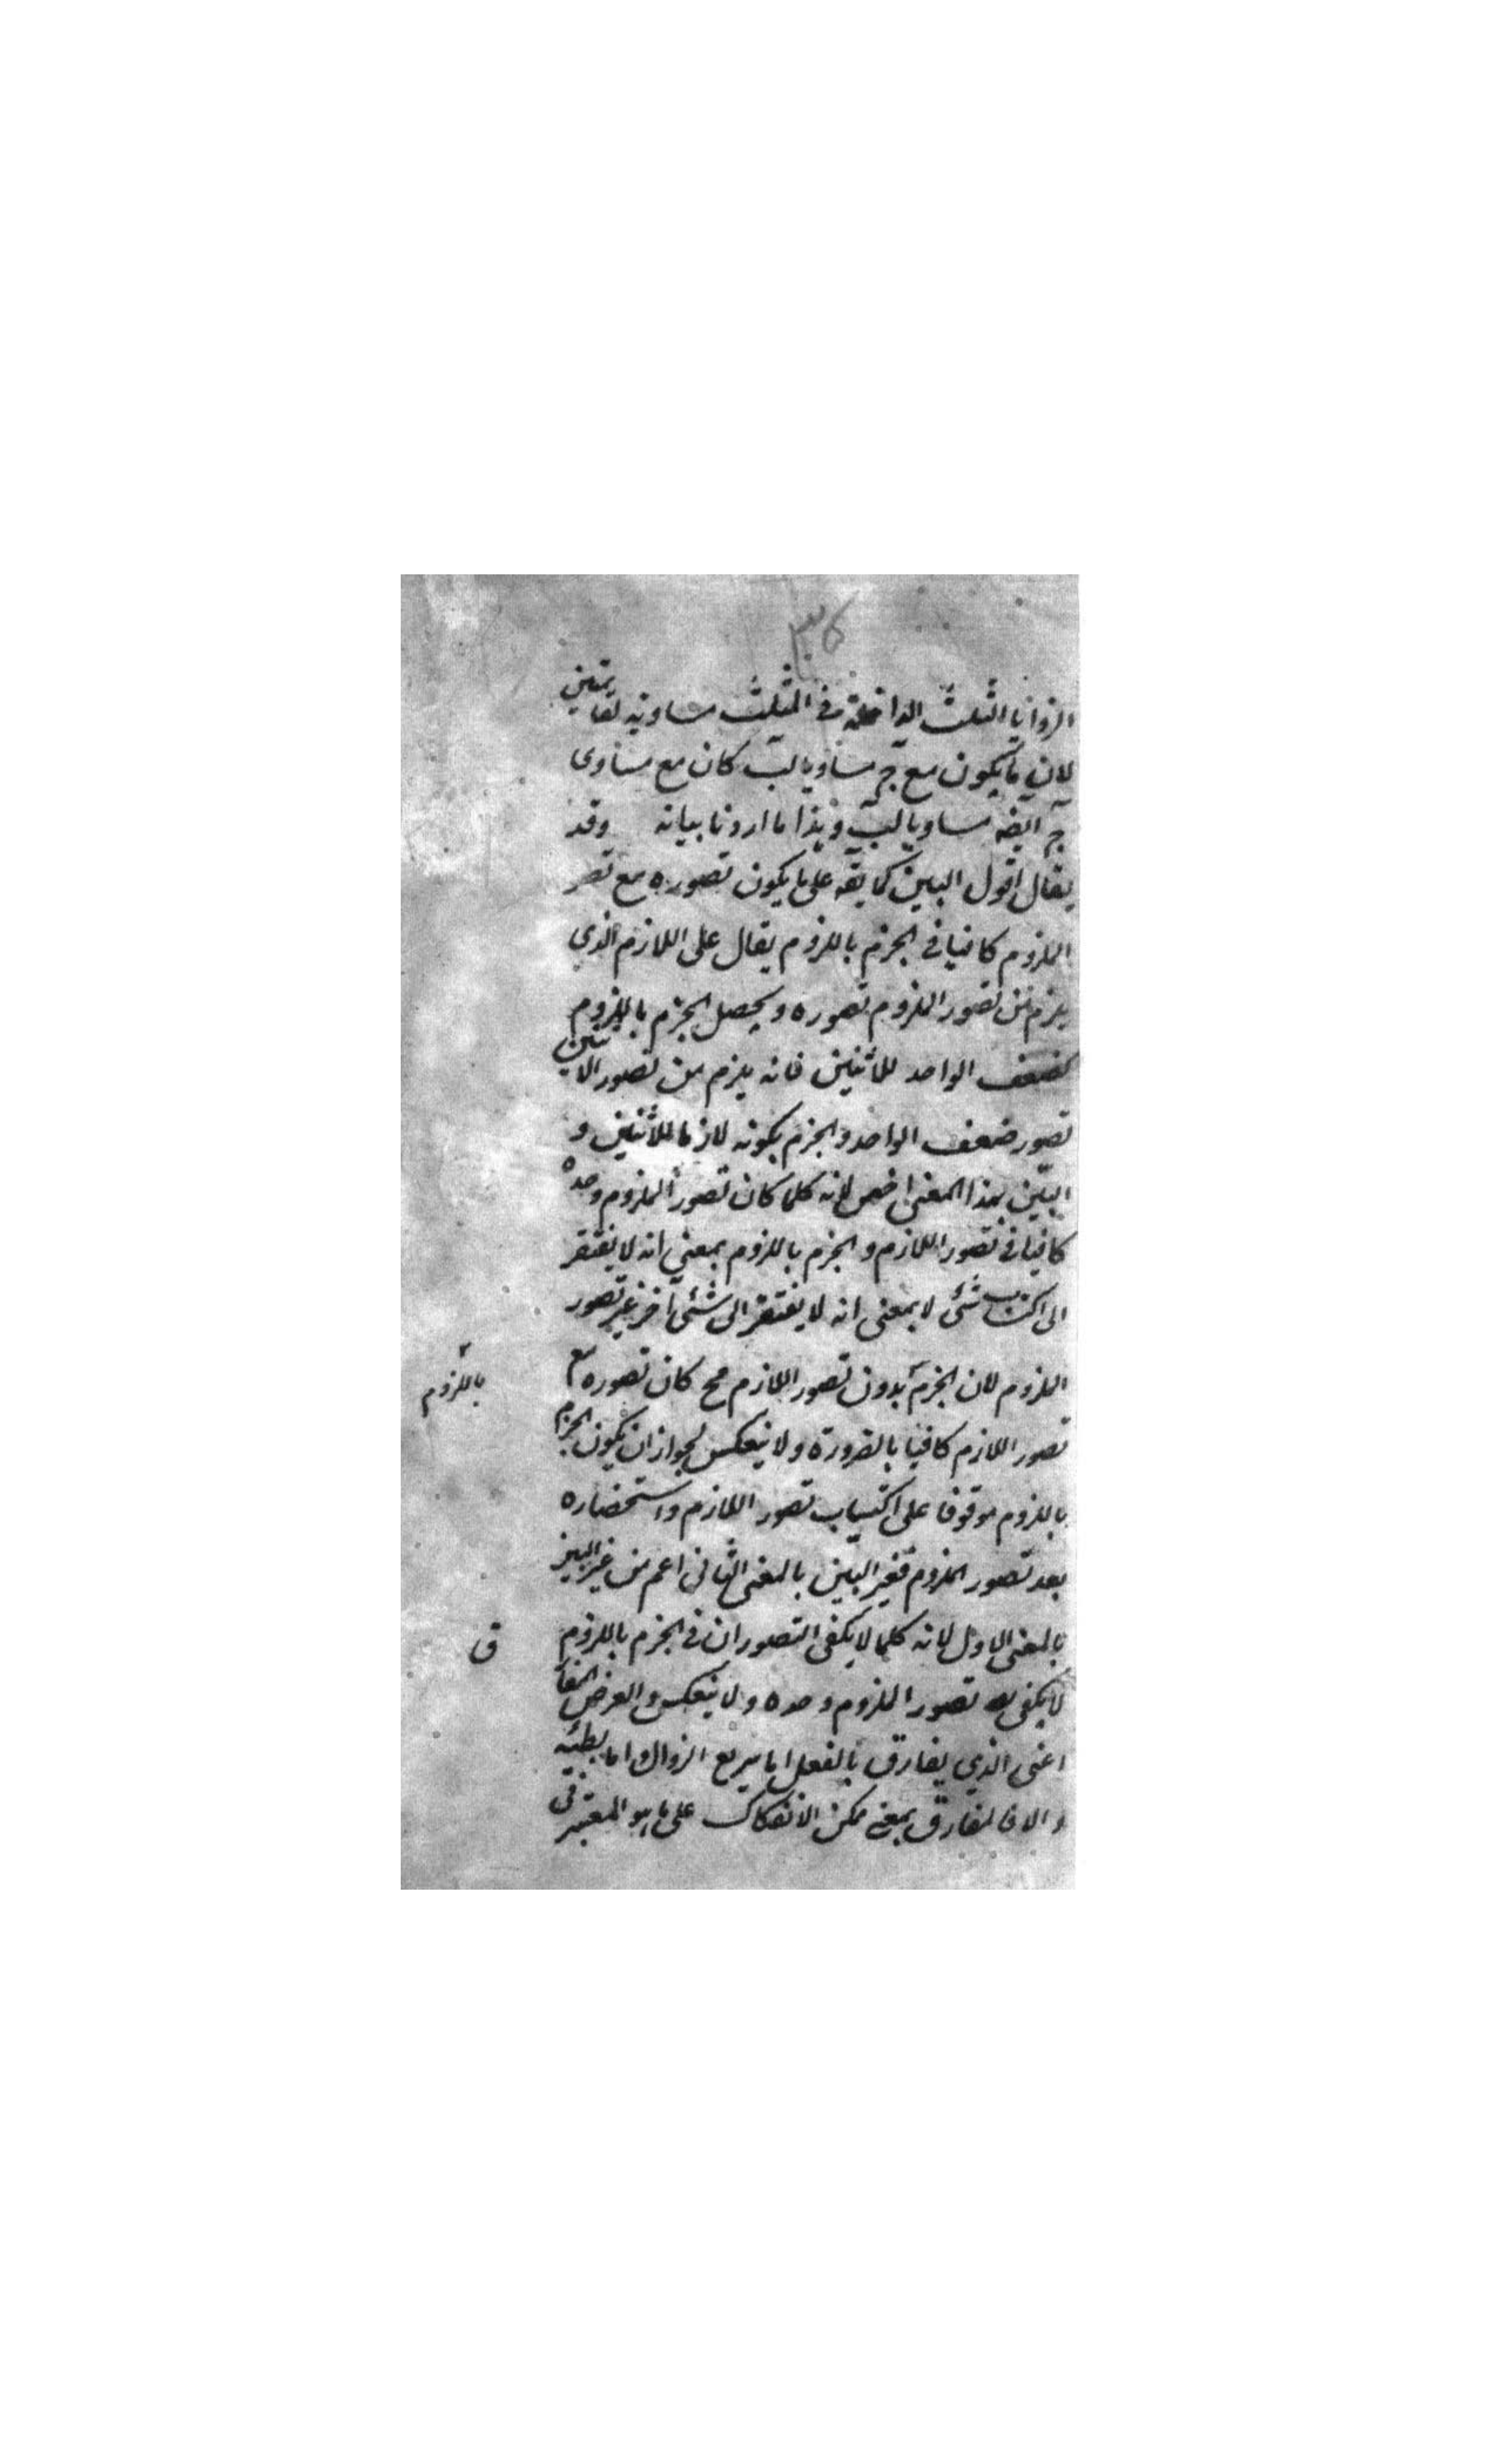 الزوايا الثلث الداخلة في المثلث مساوية لقايمتين
لان ما يكون مع جـ مساويا لب كان مع مساوى
جـ ايضه مساويا لب وهذا ما اردنا بيانه وقد
يقال اقول البين كما يقه على ما يكون تصوره مع تصر
الملزوم كافيا في الجزم باللزوم يقال على اللازم الذي
يلزم من تصور الملزوم تصوره ويحصل الجزم باللزوم
كضعف الواحد للاثنين فانه يلزم من تصور الاثنين
تصور ضعف الواحد والجزم بكونه لازما للاثنين و
البين بهذا المعنى اخص لانه كلما كان تصور الملزوم وحده
كافيا في تصور اللازم والجزم باللزوم بمعنى انه لا يفتقر
الى اكتساب شئ لا بمعنى انه لا يفتقر الى شئ آخر غير تصور
الملزوم لان الجزم بدون تصور اللازم مح كان تصوره مع
باللزوم
تصور اللازم كافيا بالضرورة ولا ينعكس لجواز ان يكون الجزم
باللزوم موقوفا على اكتساب تصور اللازم واستحضاره
بعد تصور الملزوم فغير البين بالمعنى الثاني اعم من غير البين
بالمعنى الاول لانه كلما لا يكفى التصوران في الجزم باللزوم
لا يكفى تصور الملزوم وحده ولا ينعكس والعرض المفا
ق
اعنى الذي يفارق بالفعل اما سريع الزوال او اما بطيئه
والا فالمفارق بمعنى ممكن الانفكاك على ما هو المعتبر في